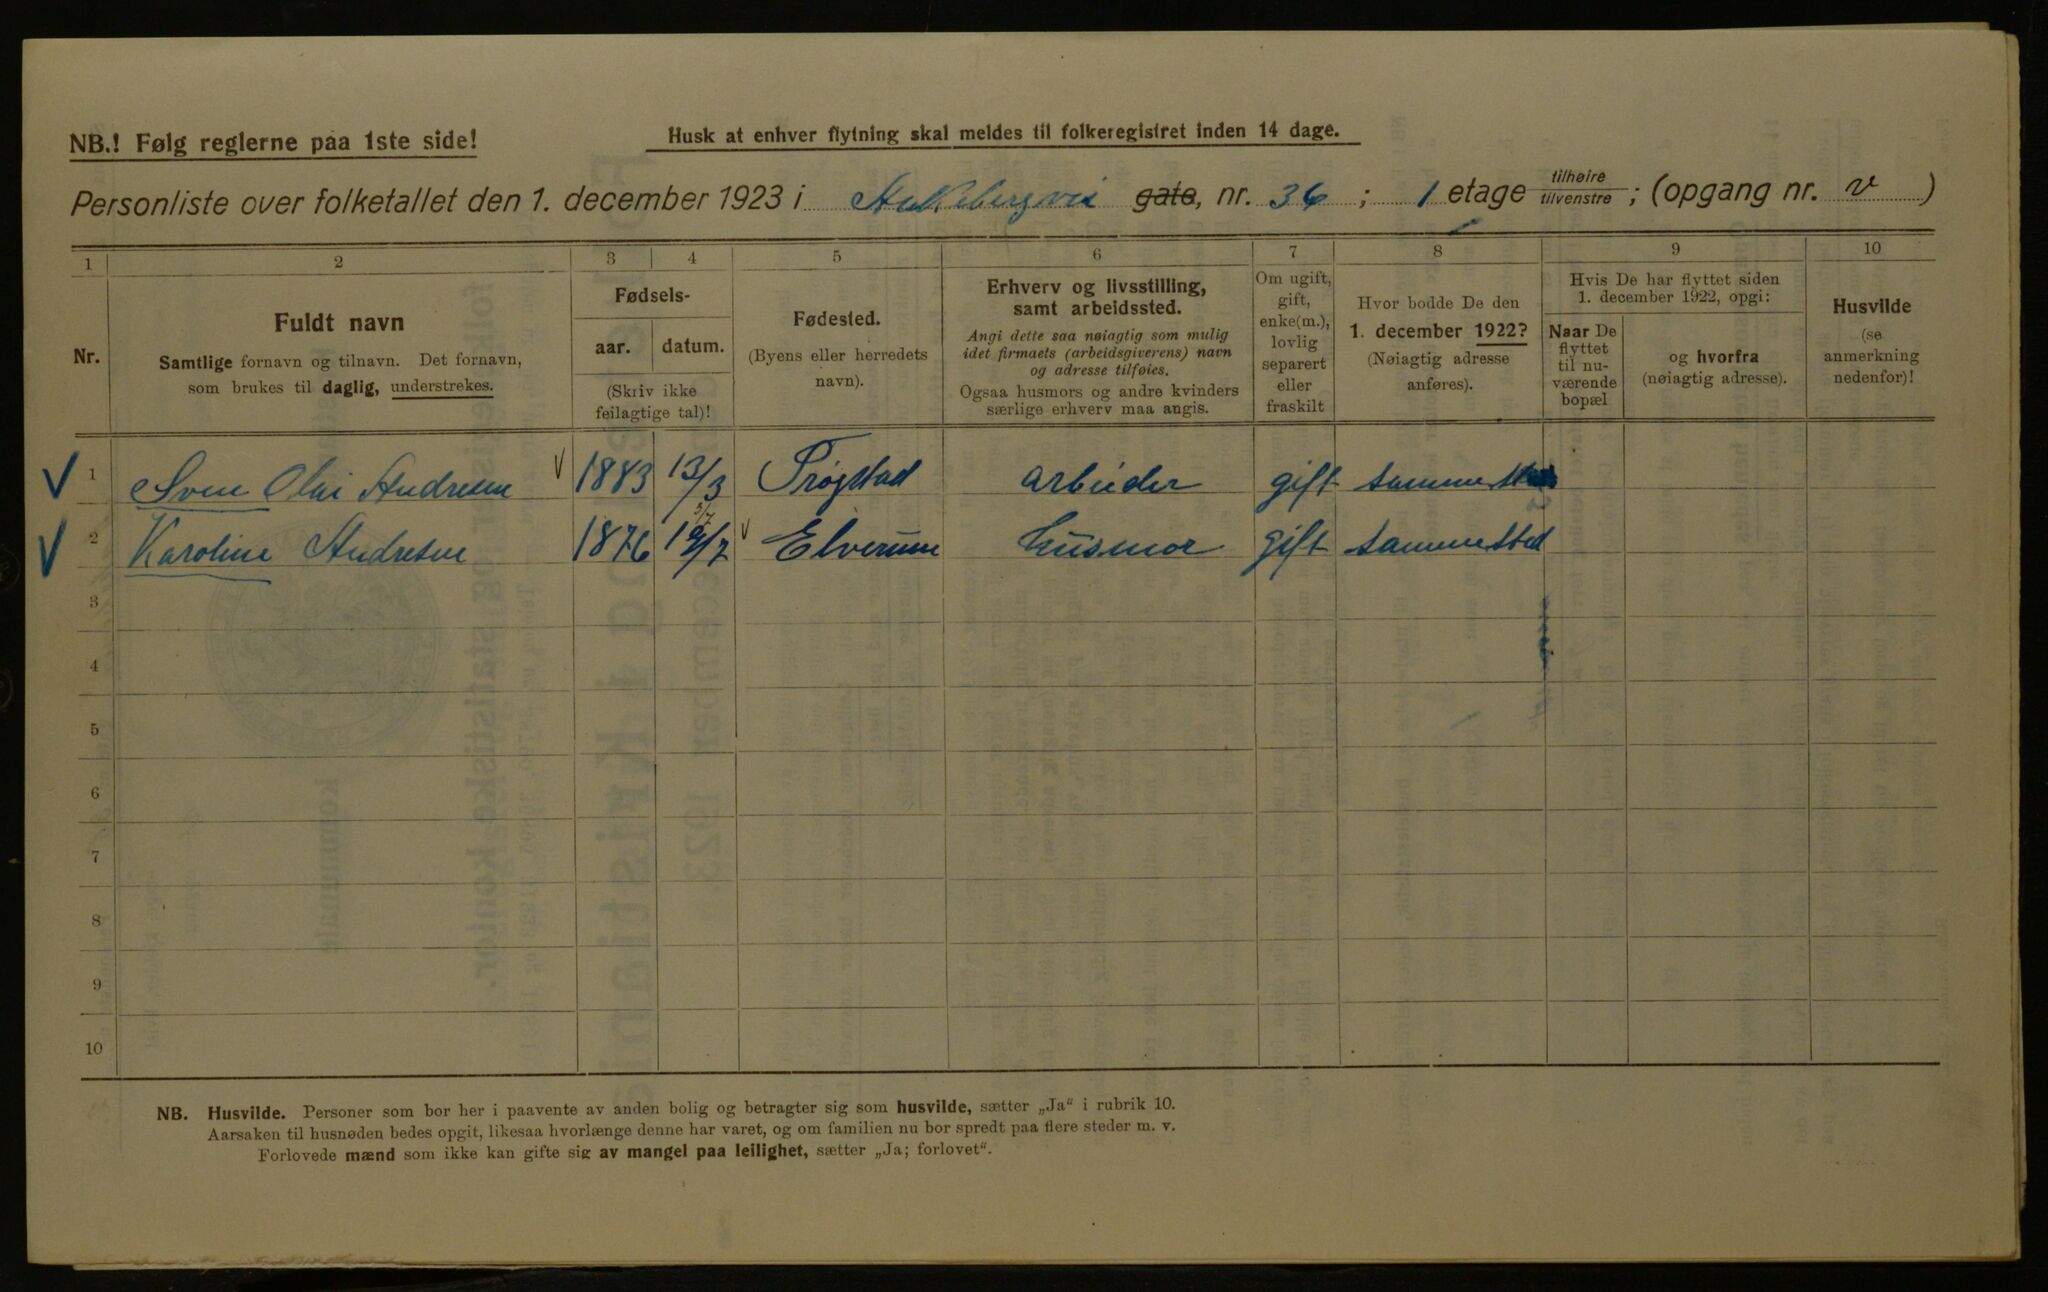 NB.! Følg reglerne paa 1ste side!
Husk at enhver flytning skal meldes til folkeregistret inden 14 dage.
Personliste over folketallet den 1. december 1923 i gate, nr. 36 ; 1 etage tilhøire tilvenstre ; (opgang nr. v )
1 2 3 4 5 6 7 8 9 10
Nr.
Fuldt navn
Samtlige fornavn og tilnavn. Det fornavn,
som brukes til daglig, understrekes.
Fødsels-
aar. datum.
(Skriv ikke
feilagtige tal)!
Fødested.
(Byens eller herredets
navn).
Erhverv og livsstilling,
samt arbeidssted.
Angi dette saa nøiagtig som mulig
idet firmaets (arbeidsgiverens) navn
og adresse tilføies.
Ogsaa husmors og andre kvinders
særlige erhverv maa angis.
Om ugift,
gift,
enke(m.),
lovlig
separert
eller
fraskilt
Hvor bodde De den
1. december 1922?
(Nøiagtig adresse
anføres).
Hvis De har flyttet siden
1. december 1922, opgi:
Naar De
flyttet
til nu-
værende
bopæl
og hvorfra
(nøiagtig adresse).
Husvilde
(se
anmerkning
nedenfor)!
1 Sven Olai Andresen 1883 13/3 Trøgstad arbeider gift samme sted
5/7
2 Karoline Andresen 1876 Elverum husmor gift samme sted
3
4
5
6
7
8
9
10
NB. Husvilde. Personer som bor her i paavente av anden bolig og betragter sig som husvilde, sætter „Ja" i rubrik 10.
Aarsaken til husnøden bedes opgit, likesaa hvorlænge denne har varet, og om familien nu bor spredt paa flere steder m. v.
Forlovede mænd som ikke kan gifte sig av mangel paa leilighet, sætter „Ja; forlovet".